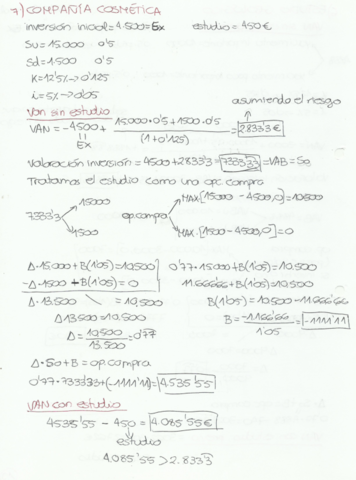 7) COMPAÑÍA COSMÉTICA
inversión inicial = 4.500 = Ex estudio = 450€
Su = 15.000 0'5
Sd = 1.500 0'5
K = 12'5% → 0'125
i = 5% → 0'05
asumiendo el riesgo
Van sin estudio
VAN = -4500 + 15000·0'5 + 1500·0'5 / (1+0'125) = 2833'3€
Ex
Valoración inversión = 4500 + 2833'3 = 7333'33 = VAB = So
Tratamos el estudio como una opc. compra
15000 MAX·[15000 - 4500,0] = 10500
7333'3 op.compra
1500 MAX·[1500 - 4500,0] = 0
Δ·15000 + B(1'05) = 10.500 0'77·15.000 + B(1'05) = 10.500
-Δ·1500 + B(1'05) = 0 11.666'66 + B(1'05) = 10.500
Δ·13.500 = 10.500 B(1'05) = 10.500 - 11.666'66
Δ13.500 = 10.500 B = -1.166'66 / 1'05 = -1111'11
Δ = 10.500 / 13.500 = 0'77
Δ·So + B = op.compra
0'77·7333'33 + (-1111'11) = 4.535'55
VAN con estudio
4535'55 - 450 = 4.085'55€
estudio
4.085'55 > 2.833'3